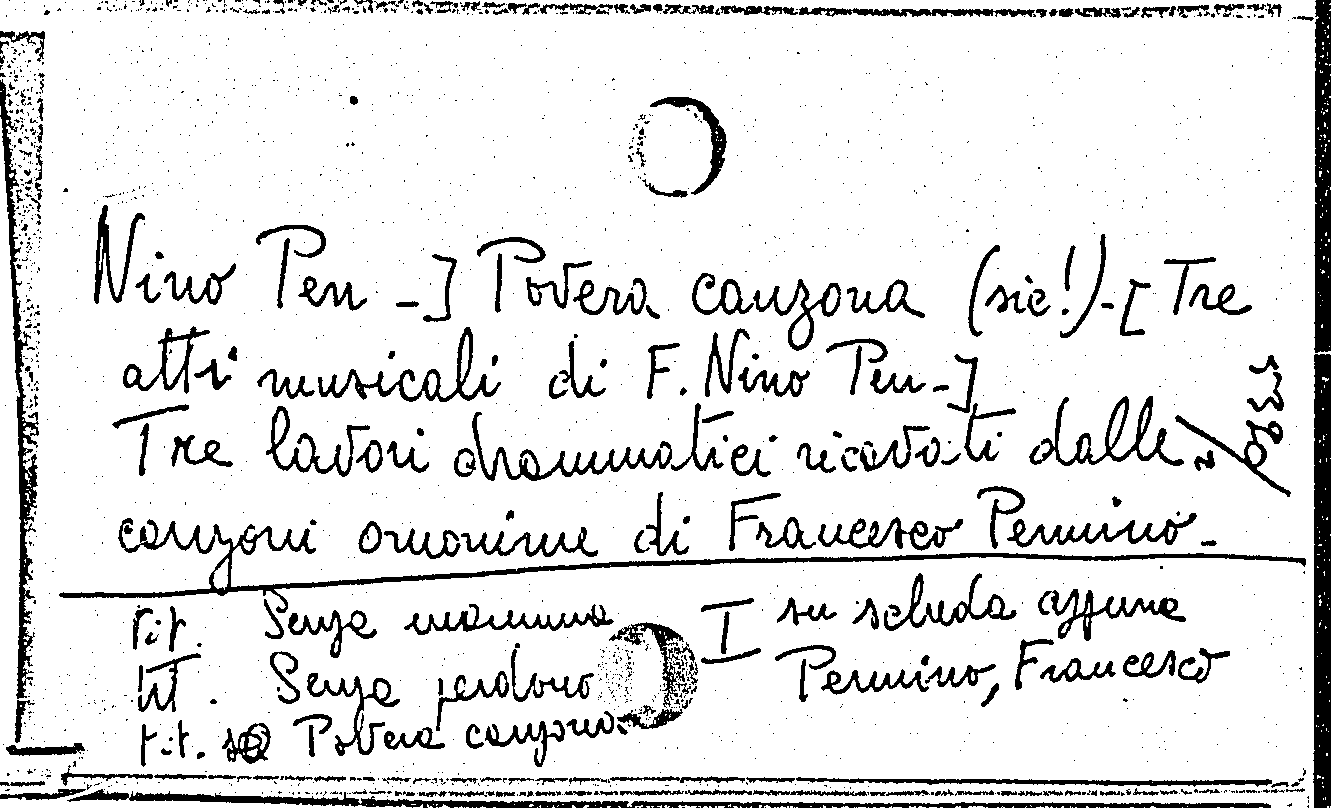 Nino Pen -] Povera canzona (sic!)-[Tre
atti musicali di F. Nino Pen-]
Tre lavori drammatici ricavati dalle
canzoni omonime di Francesco Pennino-
tit. Senza mamma
tit. Senza perdono
tit. Povera canzona
I su scheda appena
Pennino, Francesco